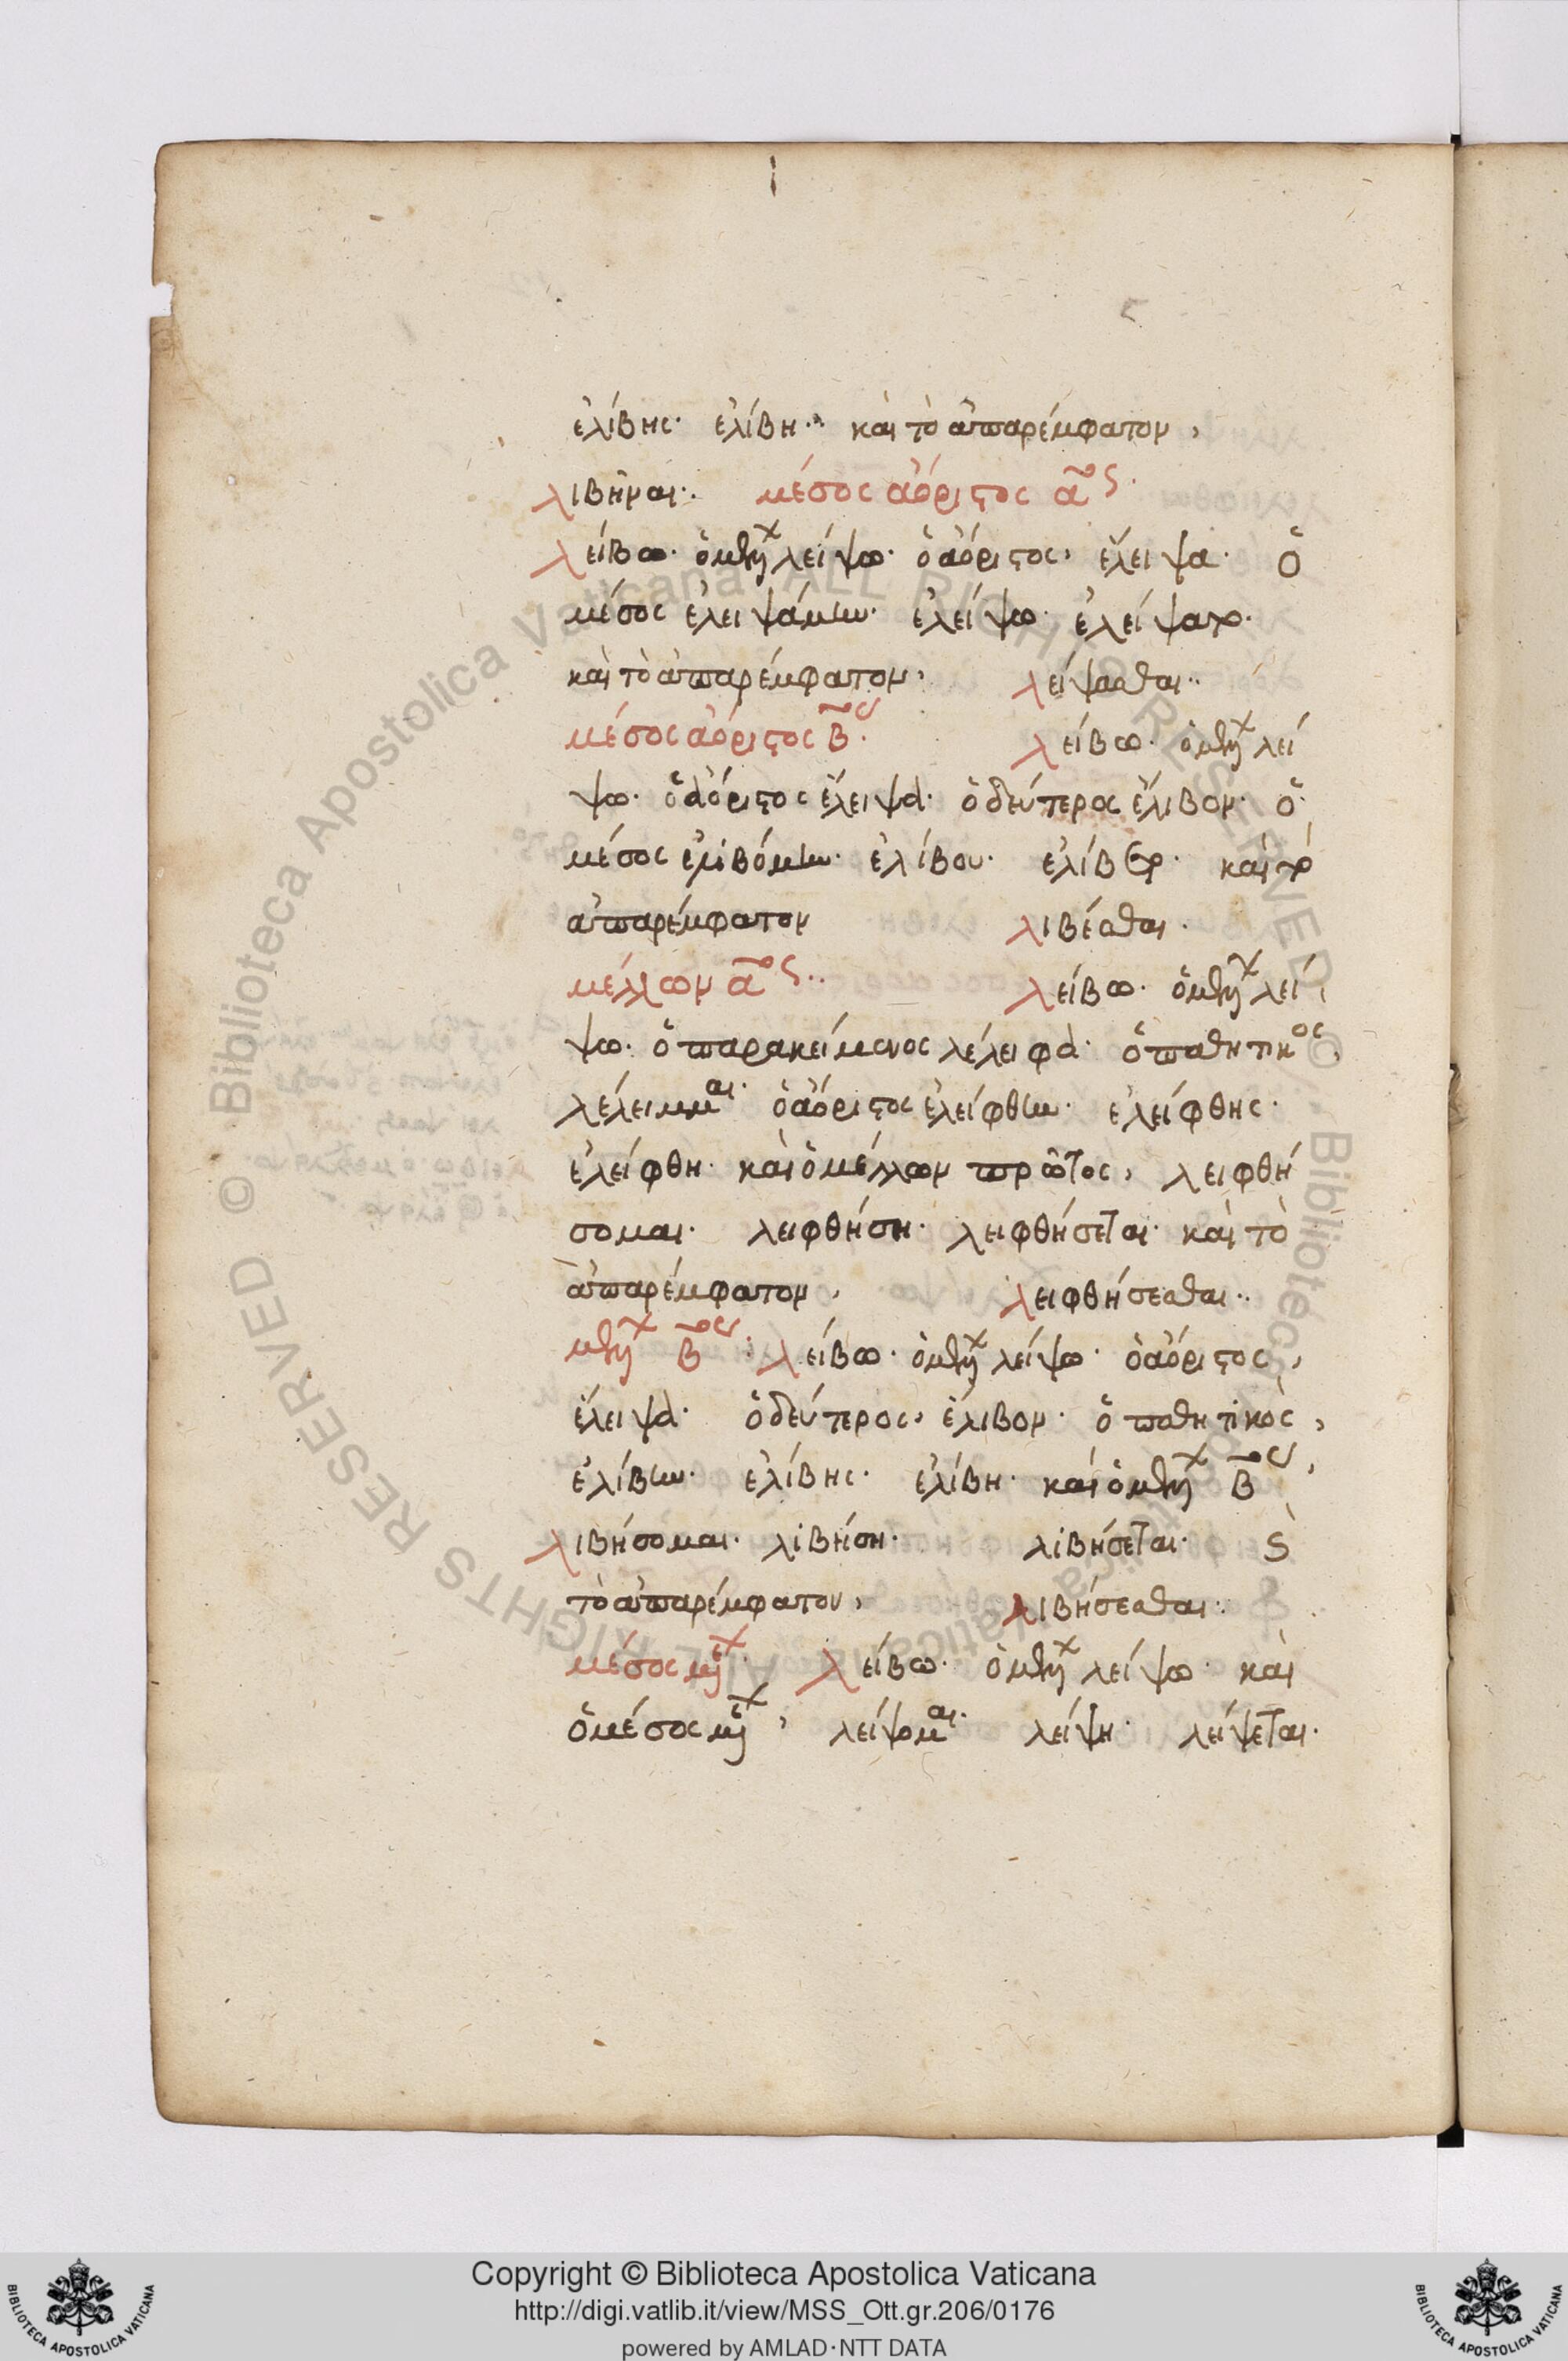 ἐλίβης· ἐλίβη· καὶ τὸ ἀπαρέμφατον,
λιβῆναι· μέσος ἀόριστος α̅ος·
λείβω· ὁ μέλλων λείψω· ὁ ἀόριστος, ἔλειψα· ὁ
μέσος ἐλειψάμην· ἐλείψω· ἐλείψατο·
καὶ τὸ ἀπαρέμφατον, λείψασθαι··
μέσος ἀόριστος β̅ος· λείβω· ὁ μέλλων λεί
ψω· ὁ ἀόριστος ἔλειψα· ὁ δεύτερος ἔλιβον· ὁ
μέσος ἐλιβόμην· ἐλίβου· ἐλίβετο· καὶ τὸ
ἀπαρέμφατον λιβέσθαι·
μέλλων α̅ος·· λείβω· ὁ μέλλων λεί
ψω· ὁ παρακείμενος λέλειφα· ὁ παθητικος,
λέλειμμαι· ὁ ἀόριστος ἐλείφθην· ἐλείφθης·
ἐλείφθη· καὶ ὁ μέλλων πρῶτος, λειφθή
σομαι· λειφθήση· λειφθήσεται· καὶ τὸ
ἀπαρέμφατον, λειφθήσεσθαι··
μέλλων β̅ος· λείβω· ὁ μέλλων λείψω· ὁ ἀόριστος,
ἔλειψα· ὁ δεύτερος, ἔλιβον· ὁ παθητικὸς,
ἐλίβην· ἐλίβης· ἐλίβη· καὶ ὁ μέλλων β̅ος,
λιβήσομαι· λιβήση· λιβήσεται· ϗ
τὸ ἀπαρέμφατον, λιβήσεσθαι·
μέσος μέλλων· λείβω· ὁ μέλλων λείψω· καὶ
ὁ μέσος μέλλων, λείψομαι· λείψη· λείψεται·
Copyright © Biblioteca Apostolica Vaticana
http://digi.vatlib.it/view/MSS_Ott.gr.206/0176
powered by AMLAD·NTT DATA